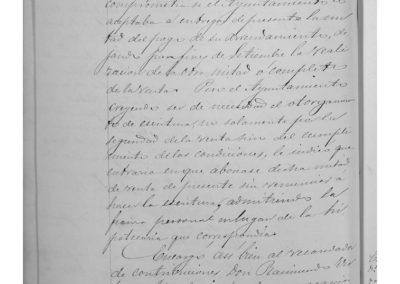 comprometia si el Ayuntamiento le
aceptaba á entregar de presente la mi-
tad del pago de su arrendamiento, de
jando para fines de Setiembre la reali
zacion de la otra mitad ó completo
de la renta. Pero el Ayuntamiento
creyendo ser de necesidad el otorgamien
to de escritura, no solamente por la
seguridad de la renta sino del cumpli
miento de las condiciones, le indicó que
entraria en que abonase dicha mitad
de renta de presente sin renunciar á
hacer la escritura, admitiendo la
fianza personal en lugar de la hi
potecaria que correspondia.
Encargó asi bien al recaudador
de contribuciones Don Raimundo